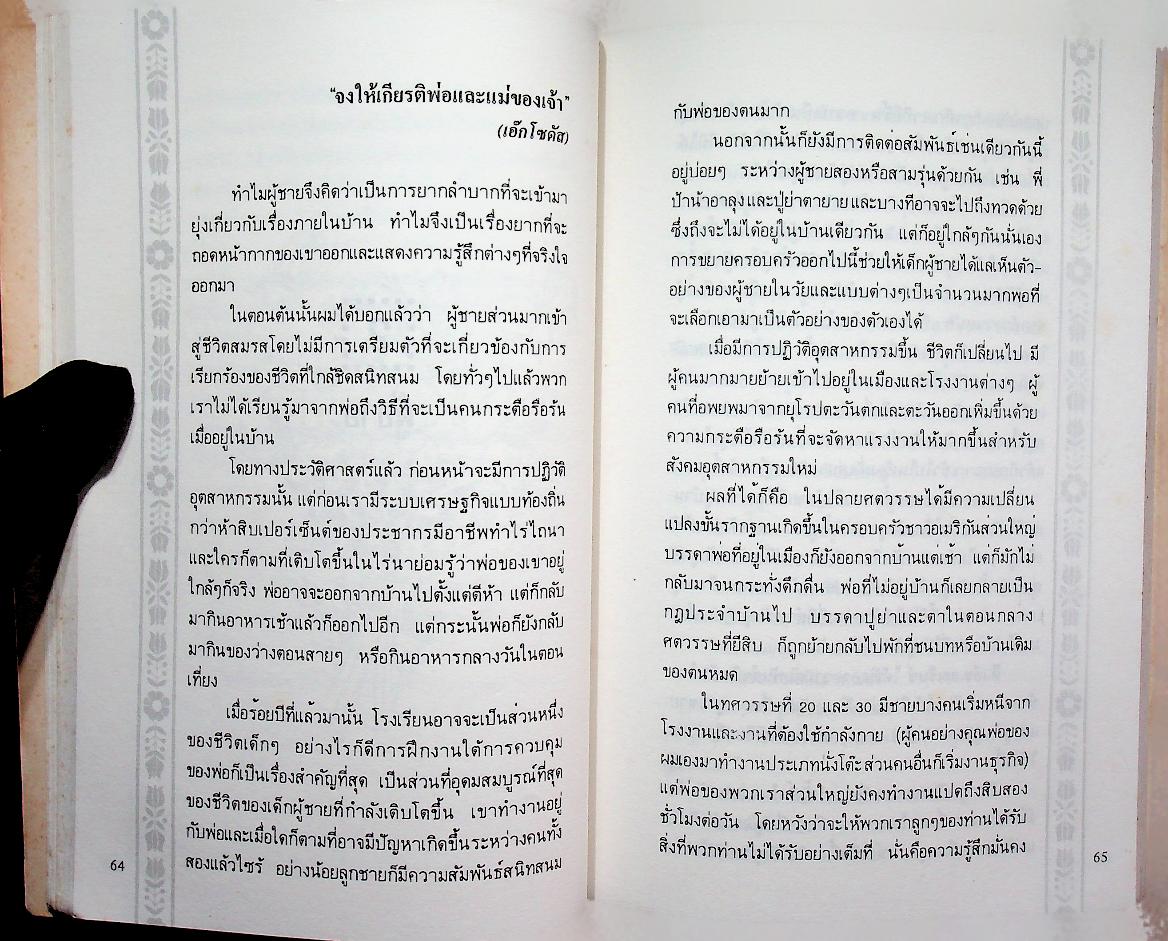 "จงให้เกียรติพ่อและแม่ของเจ้า"
(เอ๊กโซดัส)
ทำไมผู้ชายจึงคิดว่าเป็นการยากลำบากที่จะเข้ามา
ยุ่งเกี่ยวกับเรื่องภายในบ้าน ทำไมจึงเป็นเรื่องยากที่จะ
ถอดหน้ากากของเขาออกและแสดงความรู้สึกต่างๆที่จริงใจ
ออกมา
ในตอนต้นนั้นผมได้บอกแล้วว่า ผู้ชายส่วนมากเข้า
สู่ชีวิตสมรสโดยไม่มีการเตรียมตัวที่จะเกี่ยวข้องกับการ
เรียกร้องของชีวิตที่ใกล้ชิดสนิทสนม โดยทั่วๆไปแล้วพวก
เราไม่ได้เรียนรู้มาจากพ่อถึงวิธีที่จะเป็นคนกระตือรือร้น
เมื่ออยู่ในบ้าน
โดยทางประวัติศาสตร์แล้ว ก่อนหน้าจะมีการปฏิวัติ
อุตสาหกรรมนั้น แต่ก่อนเรามีระบบเศรษฐกิจแบบท้องถิ่น
กว่าห้าสิบเปอร์เซ็นต์ของประชากรมีอาชีพทำไร่ไถนา
และใครก็ตามที่เติบโตขึ้นในไร่นาย่อมรู้ว่าพ่อของเขาอยู่
ใกล้ๆก็จริง พ่ออาจจะออกจากบ้านไปตั้งแต่ตีห้า แต่ก็กลับ
มากินอาหารเช้าแล้วก็ออกไปอีก แต่กระนั้นพ่อก็ยังกลับ
มากินของว่างตอนสายๆ หรือกินอาหารกลางวันในตอน
เที่ยง
เมื่อร้อยปีที่แล้วมานั้น โรงเรียนอาจจะเป็นส่วนหนึ่ง
ของชีวิตเด็กๆ อย่างไรก็ดีการฝึกงานใต้การควบคุม
ของพ่อก็เป็นเรื่องสำคัญที่สุด เป็นส่วนที่อุดมสมบูรณ์ที่สุด
ของชีวิตของเด็กผู้ชายที่กำลังเติบโตขึ้น เขาทำงานอยู่
กับพ่อและเมื่อใดก็ตามที่อาจมีปัญหาเกิดขึ้นระหว่างคนทั้ง
สองแล้วไซร้ อย่างน้อยลูกชายก็มีความสัมพันธ์สนิทสนม
64
กับพ่อของตนมาก
นอกจากนั้นก็ยังมีการติดต่อสัมพันธ์เช่นเดียวกันนี้
อยู่บ่อยๆ ระหว่างผู้ชายสองหรือสามรุ่นด้วยกัน เช่น พี่
ป้าน้าอาลุง และปู่ย่าตายาย และบางทีอาจจะไปถึงทวดด้วย
ซึ่งถึงจะไม่ได้อยู่ในบ้านเดียวกัน แต่ก็อยู่ใกล้ๆกันนั่นเอง
การขยายครอบครัวออกไปนี้ช่วยให้เด็กผู้ชายได้แลเห็นตัว-
อย่างของผู้ชายในวัยและแบบต่างๆเป็นจำนวนมากพอที่
จะเลือกเอามาเป็นตัวอย่างของตัวเองได้
เมื่อมีการปฏิวัติอุตสาหกรรมขึ้น ชีวิตก็เปลี่ยนไป มี
ผู้คนมากมายย้ายเข้าไปอยู่ในเมืองและโรงงานต่างๆ ผู้
คนที่อพยพมาจากยุโรปตะวันตกและตะวันออกเพิ่มขึ้นด้วย
ความกระตือรือร้นที่จะจัดหาแรงงานให้มากขึ้นสำหรับ
สังคมอุตสาหกรรมใหม่
ผลที่ได้ก็คือ ในปลายศตวรรษได้มีความเปลี่ยน
แปลงขั้นรากฐานเกิดขึ้นในครอบครัวชาวอเมริกันส่วนใหญ่
บรรดาพ่อที่อยู่ในเมืองก็ยังออกจากบ้านแต่เช้า แต่ก็มักไม่
กลับมาจนกระทั่งดึกดื่น พ่อที่ไม่อยู่บ้านก็เลยกลายเป็น
กฎประจำบ้านไป บรรดาปู่ย่าและตาในตอนกลาง
ศตวรรษที่ยี่สิบ ก็ถูกย้ายกลับไปพักที่ชนบทหรือบ้านเดิม
ของตนหมด
ในทศวรรษที่ 20 และ 30 มีชายบางคนเริ่มหนีจาก
โรงงานและงานที่ต้องใช้กำลังกาย (ผู้คนอย่างคุณพ่อของ
ผมเองมาทำงานประเภทนั่งโต๊ะ ส่วนคนอื่นก็เริ่มงานธุรกิจ)
แต่พ่อของพวกเราส่วนใหญ่ยังคงทำงานแปดถึงสิบสอง
ชั่วโมงต่อวัน โดยหวังว่าจะให้พวกเราลูกๆของท่านได้รับ
สิ่งที่พวกท่านไม่ได้รับอย่างเต็มที่ นั่นคือความรู้สึกมั่นคง
65